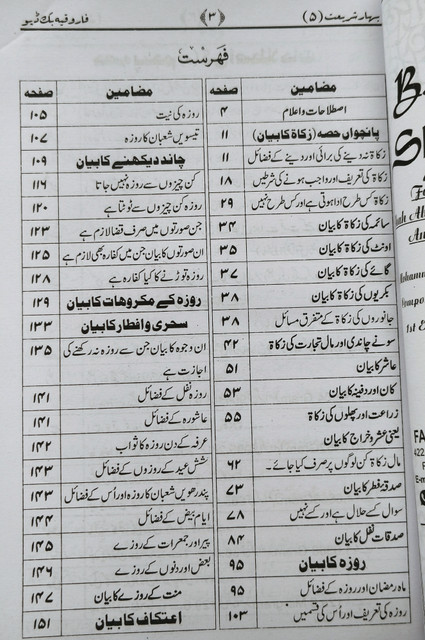 بہار شریعت (۵)
(۳)
فاروقیہ بک ڈپو
فہرست
مضامین صفحہ
اصطلاحات واعلام ۴
پانچواں حصہ (زکاۃ کابیان) ۱۱
زکاۃ نہ دینے کی برائی اور دینے کے فضائل ۱۱
زکاۃ کی تعریف اور واجب ہونے کی شرطیں ۱۸
زکاۃ کس طرح ادا ہوتی ہے اور کس طرح نہیں ۲۹
سائمہ کی زکاۃ کا بیان ۳۴
اونٹ کی زکاۃ کا بیان ۳۵
گائے کی زکاۃ کا بیان ۳۷
بکریوں کی زکاۃ کا بیان ۳۸
جانوروں کی زکاۃ کے متفرق مسائل ۳۸
سونے چاندی اور مال تجارت کی زکاۃ ۴۲
عاشر کا بیان ۵۱
کان اور دفینہ کا بیان ۵۳
زراعت اور پھلوں کی زکاۃ ۵۵
یعنی عشر وخراج کا بیان
مال زکاۃ کن لوگوں پر صرف کیا جائے۔ ۶۲
صدقۂ فطر کا بیان ۷۳
سوال کسے حلال ہے اور کسے نہیں ۷۸
صدقات نفل کا بیان ۸۴
روزہ کا بیان ۹۵
ماہ رمضان اور روزہ کے فضائل ۹۵
روزہ کی تعریف اور اُس کی قسمیں ۱۰۳
مضامین صفحہ
روزہ کی نیت ۱۰۵
تیسویں شعبان کا روزہ ۱۰۷
چاند دیکھنے کا بیان ۱۰۹
کن چیزوں سے روزہ نہیں جاتا ۱۱۶
روزہ کن چیزوں سے ٹوٹتا ہے ۱۲۰
جن صورتوں میں صرف قضا لازم ہے ۱۲۳
ان صورتوں کا بیان جن میں کفارہ بھی لازم ہے ۱۲۵
روزہ توڑنے کا کیا کفارہ ہے ۱۲۸
روزہ کے مکروہات کا بیان ۱۲۹
سحری و افطار کا بیان ۱۳۳
ان وجوہ کا بیان جن سے روزہ نہ رکھنے کی ۱۳۵
اجازت ہے
روزہ نفل کے فضائل ۱۴۱
عاشورہ کے فضائل ۱۴۱
عرفہ کے دن روزہ کا ثواب ۱۴۲
شش عید کے روزوں کے فضائل ۱۴۳
پندرھویں شعبان کا روزہ اور اُس کے فضائل ۱۴۳
ایام بیض کے فضائل ۱۴۴
پیر اور جمعرات کے روزے ۱۴۵
بعض اور دنوں کے روزے ۱۴۶
منت کے روزے کا بیان ۱۴۷
اعتکاف کا بیان ۱۵۱